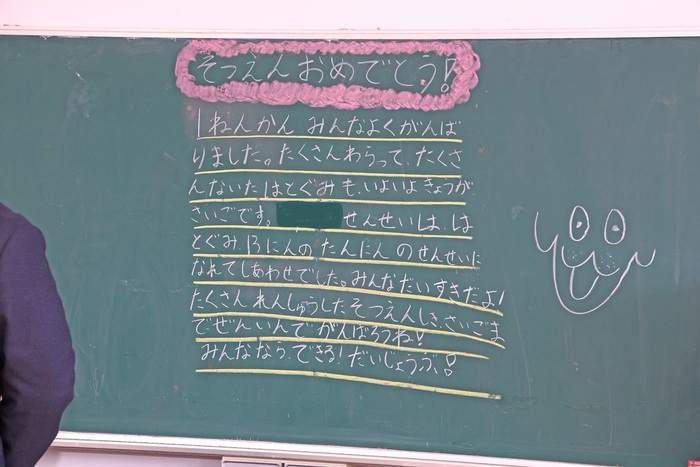 そつえんおめでとう!
1ねんかん みんなよくがんば
りました。たくさんわらって、たくさ
んないたはとぐみも、いよいよきょうが
さいごです。 せんせいは、は
とぐみ、13にんのたんにんのせんせいに
なれてしあわせでした。みんなだいすきだよ!
たくさんれんしゅうしたそつえんしき、さいごま
で、ぜんいんでがんばろうね!
みんななら、できる!だいじょうぶ!